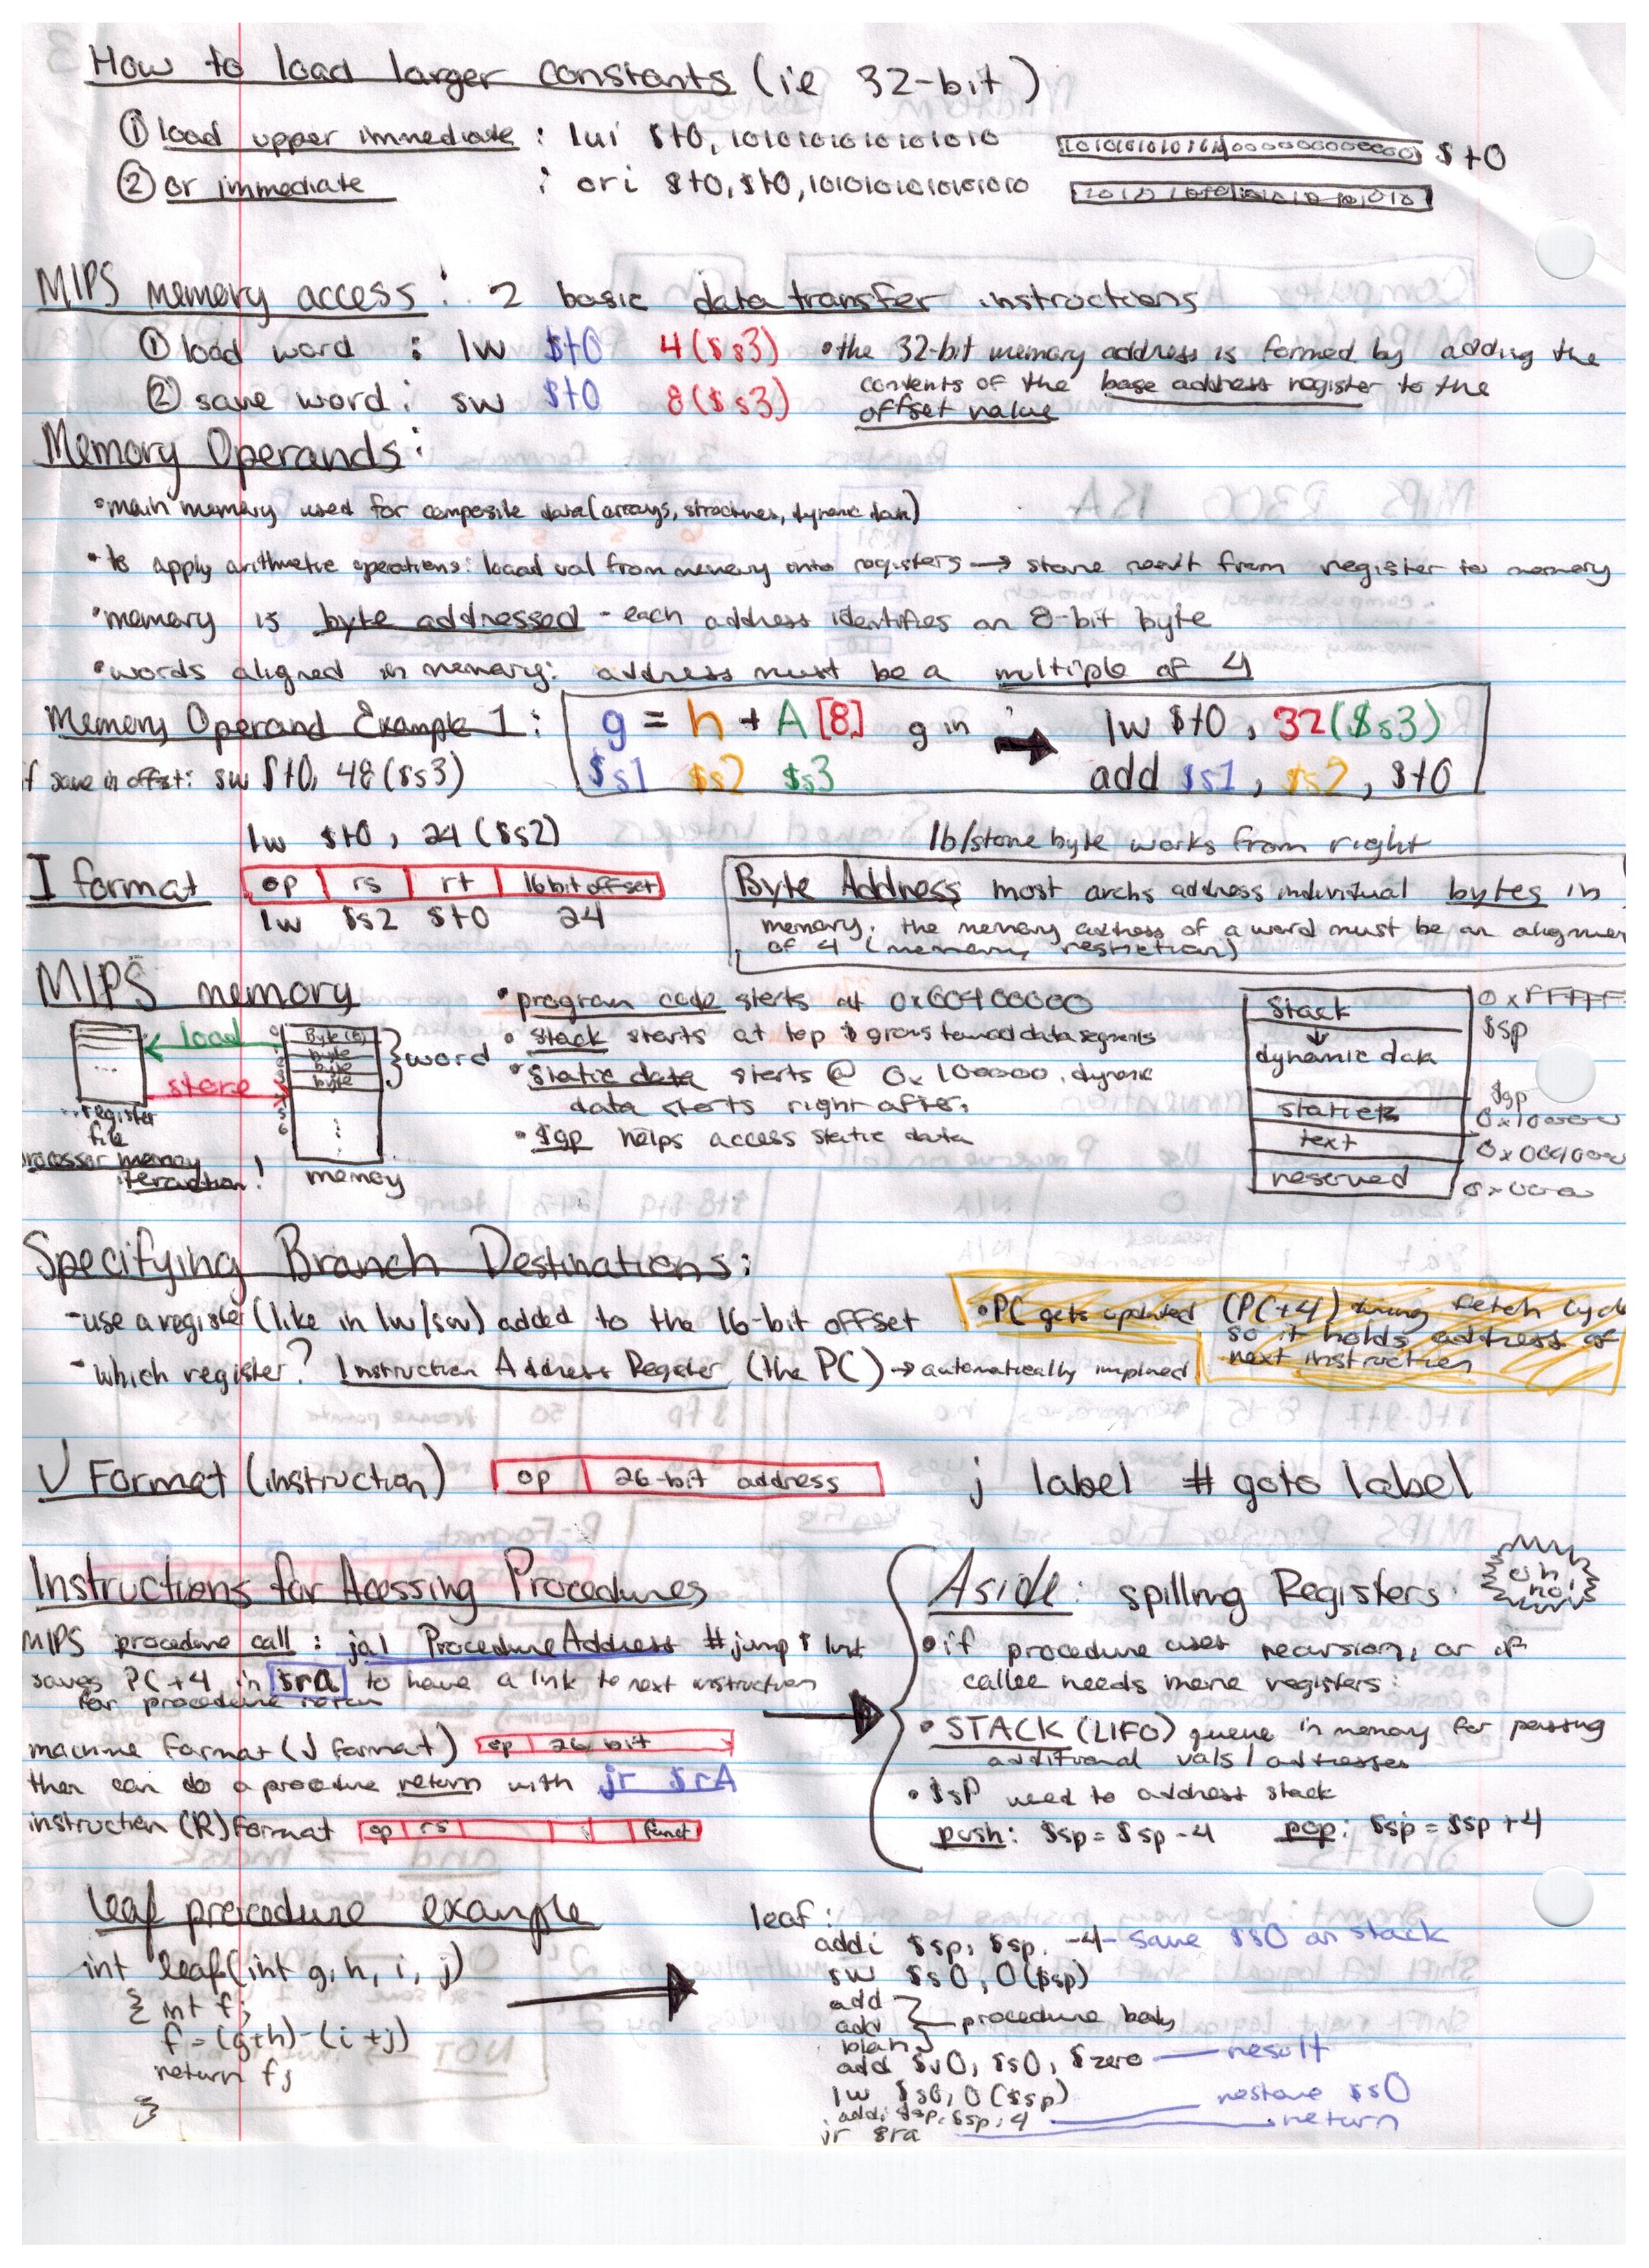 How to load larger constants (ie 32-bit)
① load upper immediate : lui $t0, 1010101010101010
$t0
② or immediate : ori $t0, $t0, 1010101010101010
MIPS memory access: 2 basic data transfer instructions
① load word : lw $t0 4($s3) • the 32-bit memory address is formed by adding the
② save word : sw $t0 8($s3) contents of the base address register to the
offset value
Memory Operands:
• main memory used for composite data (arrays, structures, dynamic data)
• to apply arithmetic operations: load val from memory onto registers → store result from register to memory
• memory is byte addressed - each address identifies an 8-bit byte
• words aligned in memory: address must be a multiple of 4
Memory Operand Example 1: g = h + A[8] g in → lw $t0, 32($s3)
$s1 $s2 $s3 add $s1, $s2, $t0
if save in offset: sw $t0, 48($s3)
lw $t0, 24($s2)
lb/store byte works from right
I format op rs rt 16 bit offset
lw $s2 $t0 24
Byte Address most archs address individual bytes in
memory. the memory address of a word must be an
of 4 (memory restriction)
MIPS memory
load
store
register
file
Byte(8)
byte
byte
byte
} word
memory
• program code starts at 0x00400000
• stack starts at top & grows toward data segments
• static data starts @ 0x100000. dynamic
data starts right after.
• $gp helps access static data
stack
dynamic data
static
text
reserved
$sp
$gp
Specifying Branch Destinations:
- use a register (like in lw/sw) added to the 16-bit offset
- which register? Instruction Address Register (the PC) → automatically implied
• PC gets updated (PC+4) during fetch cycle
so it holds address of
next instruction
J Format (instruction) op 26-bit address j label # goto label
Instructions for Acessing Procedures
MIPS procedure call: jal ProcedureAddress # jump & link
saves PC+4 in $ra to have a link to next instruction
for procedure return
machine format (J format) op 26 bit
then can do a procedure return with jr $rA
instruction (R) format op rs funct
Aside: spilling Registers oh no!
• if procedure uses recursion, or if
callee needs more registers:
• STACK (LIFO) queue in memory for passing
additional vals/addresses
• $sp used to address stack
push: $sp = $sp - 4 pop: $sp = $sp + 4
leaf procedure example
int leaf(int g, h, i, j)
{ int f;
f = (g+h) - (i+j)
return f;
}
leaf:
addi $sp, $sp, -4 - save $s0 on stack
sw $s0, 0($sp)
add
add } procedure body
blah
add $v0, $s0, $zero — result
lw $s0, 0($sp) — restore $s0
addi $sp, $sp, 4
jr $ra — return